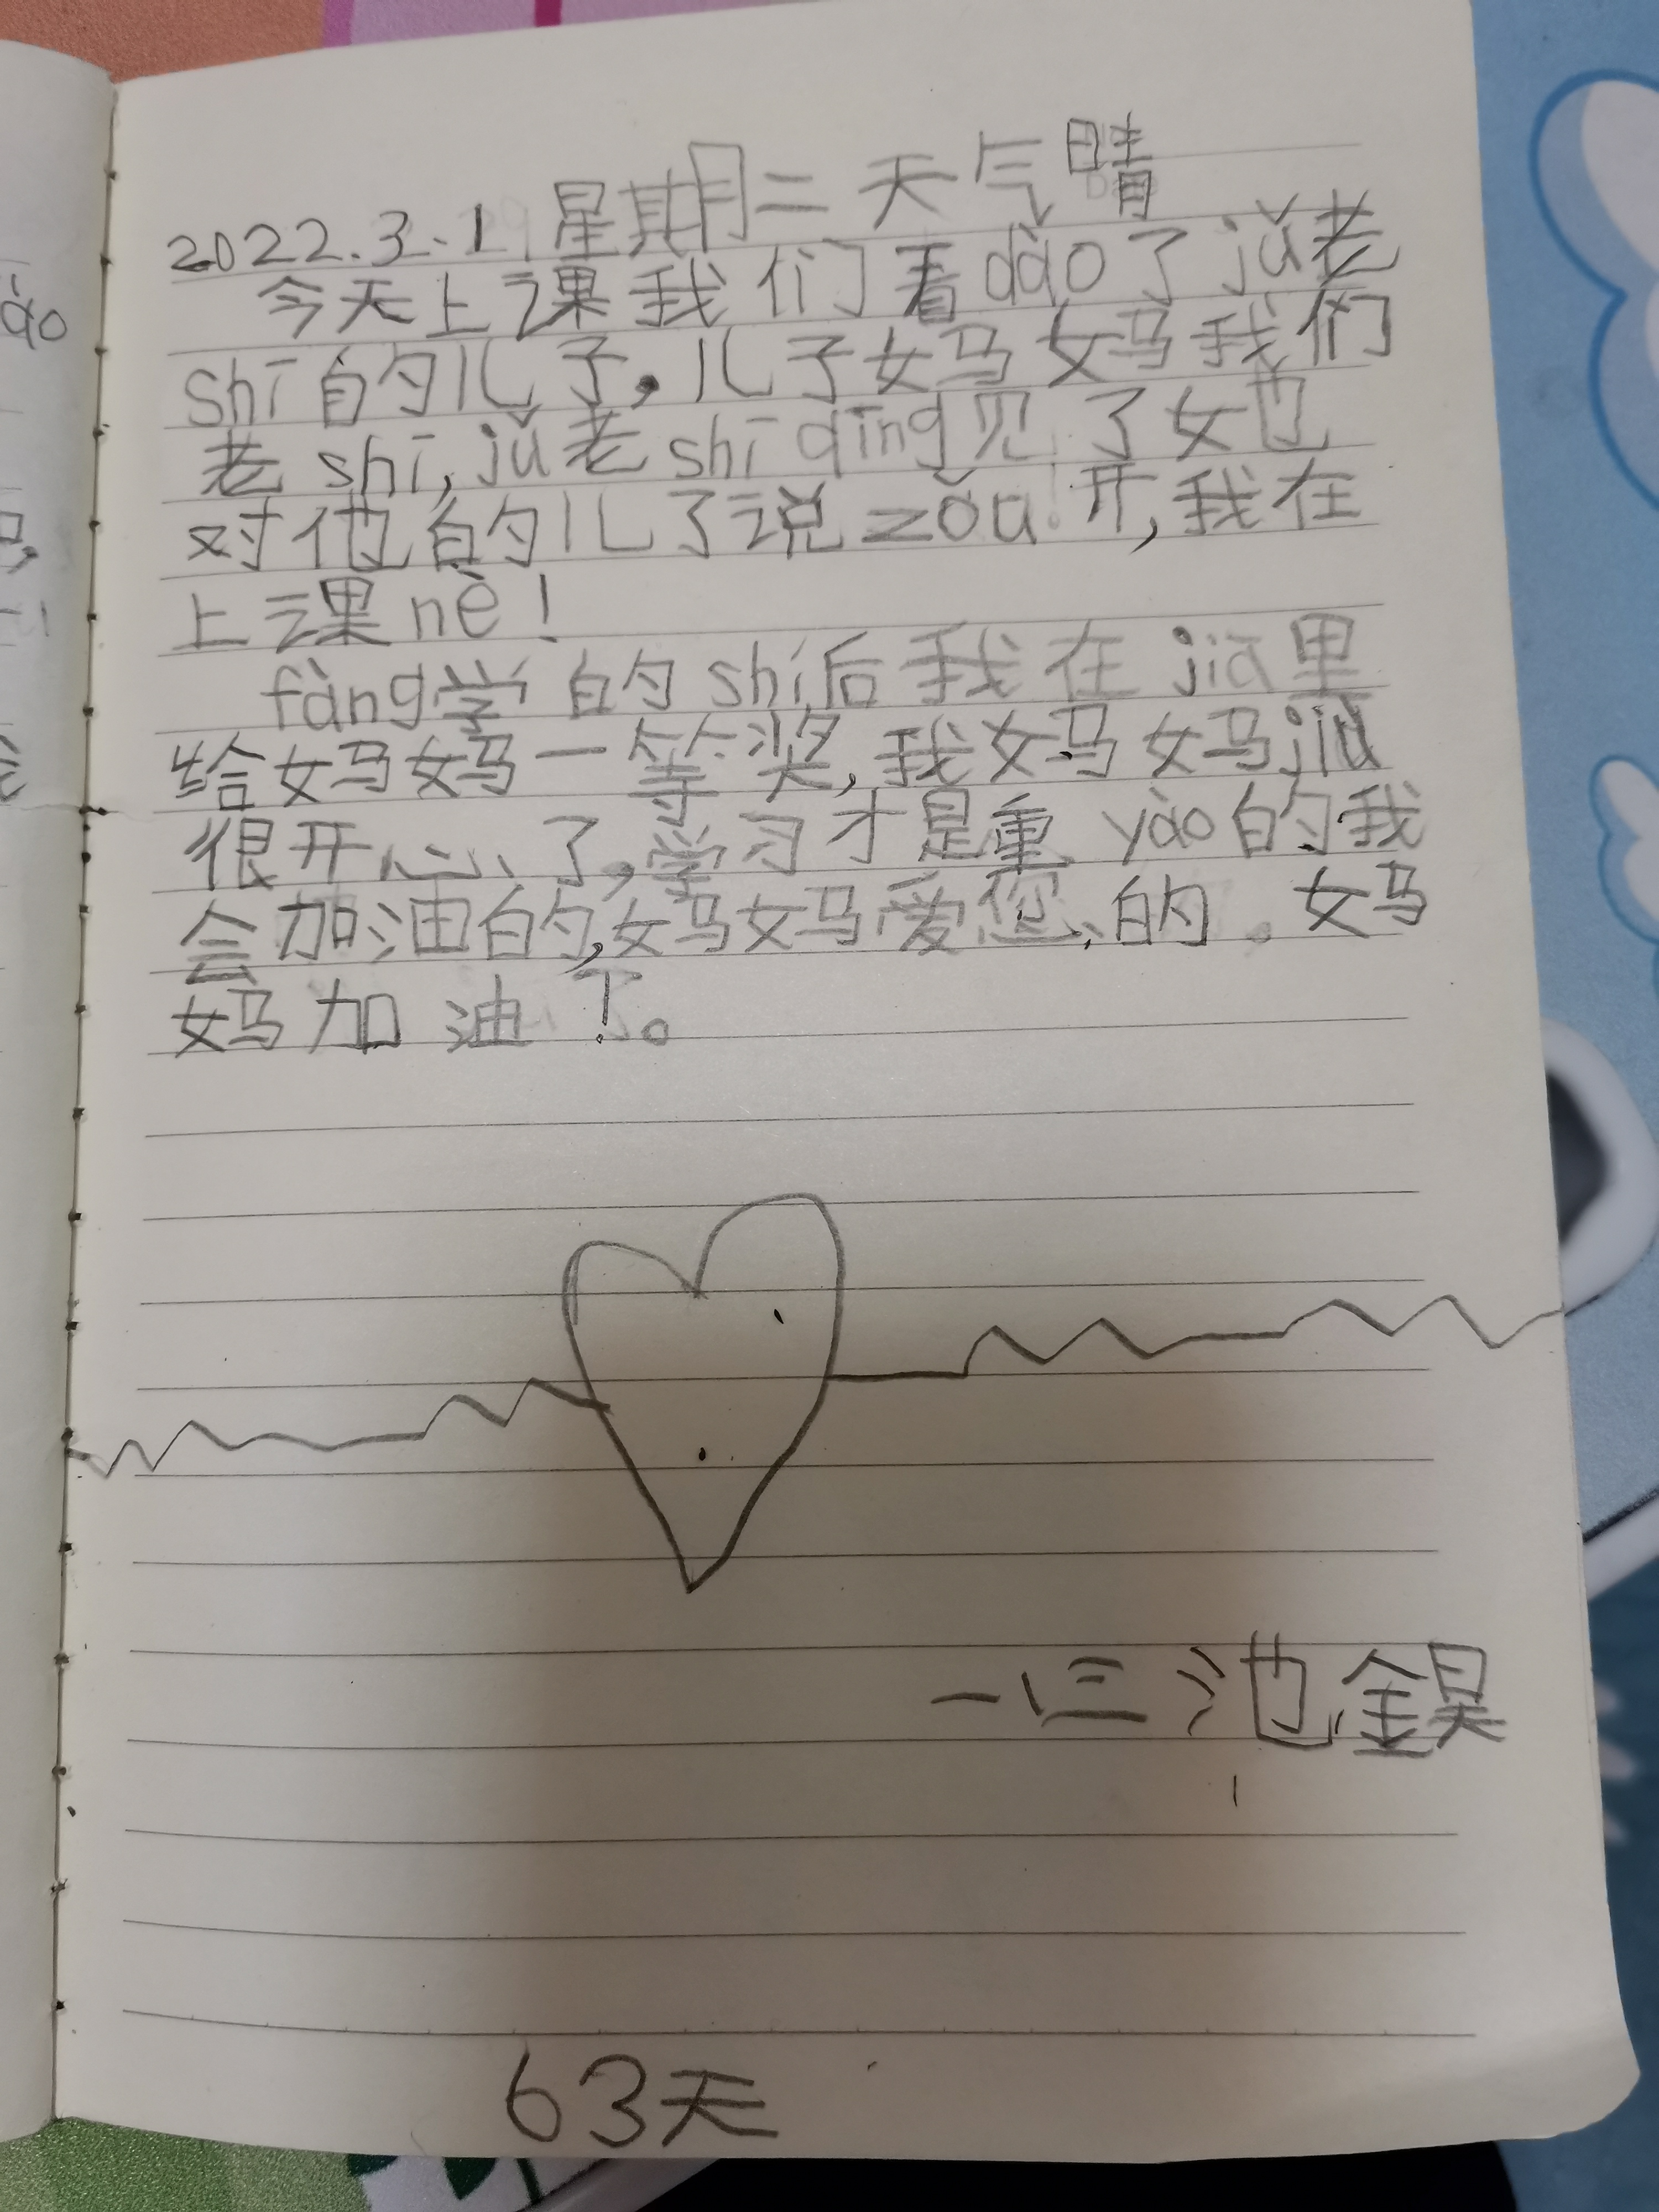 2022.3.1 星期二 天气晴
今天上课我们看dào了jǔ老
shī的儿子,儿子妈妈我们
老shī,jǔ老shī qīng见了她
对他的儿了说zǒu开,我在
上课nè!
fàng学的shí后我在jiā里
给妈妈一等奖,我妈妈jiù
很开心了,学习才是重yào的我
会加油的,妈妈爱您的。妈
妈加油!。
一(三) 池鋘
63天
ào